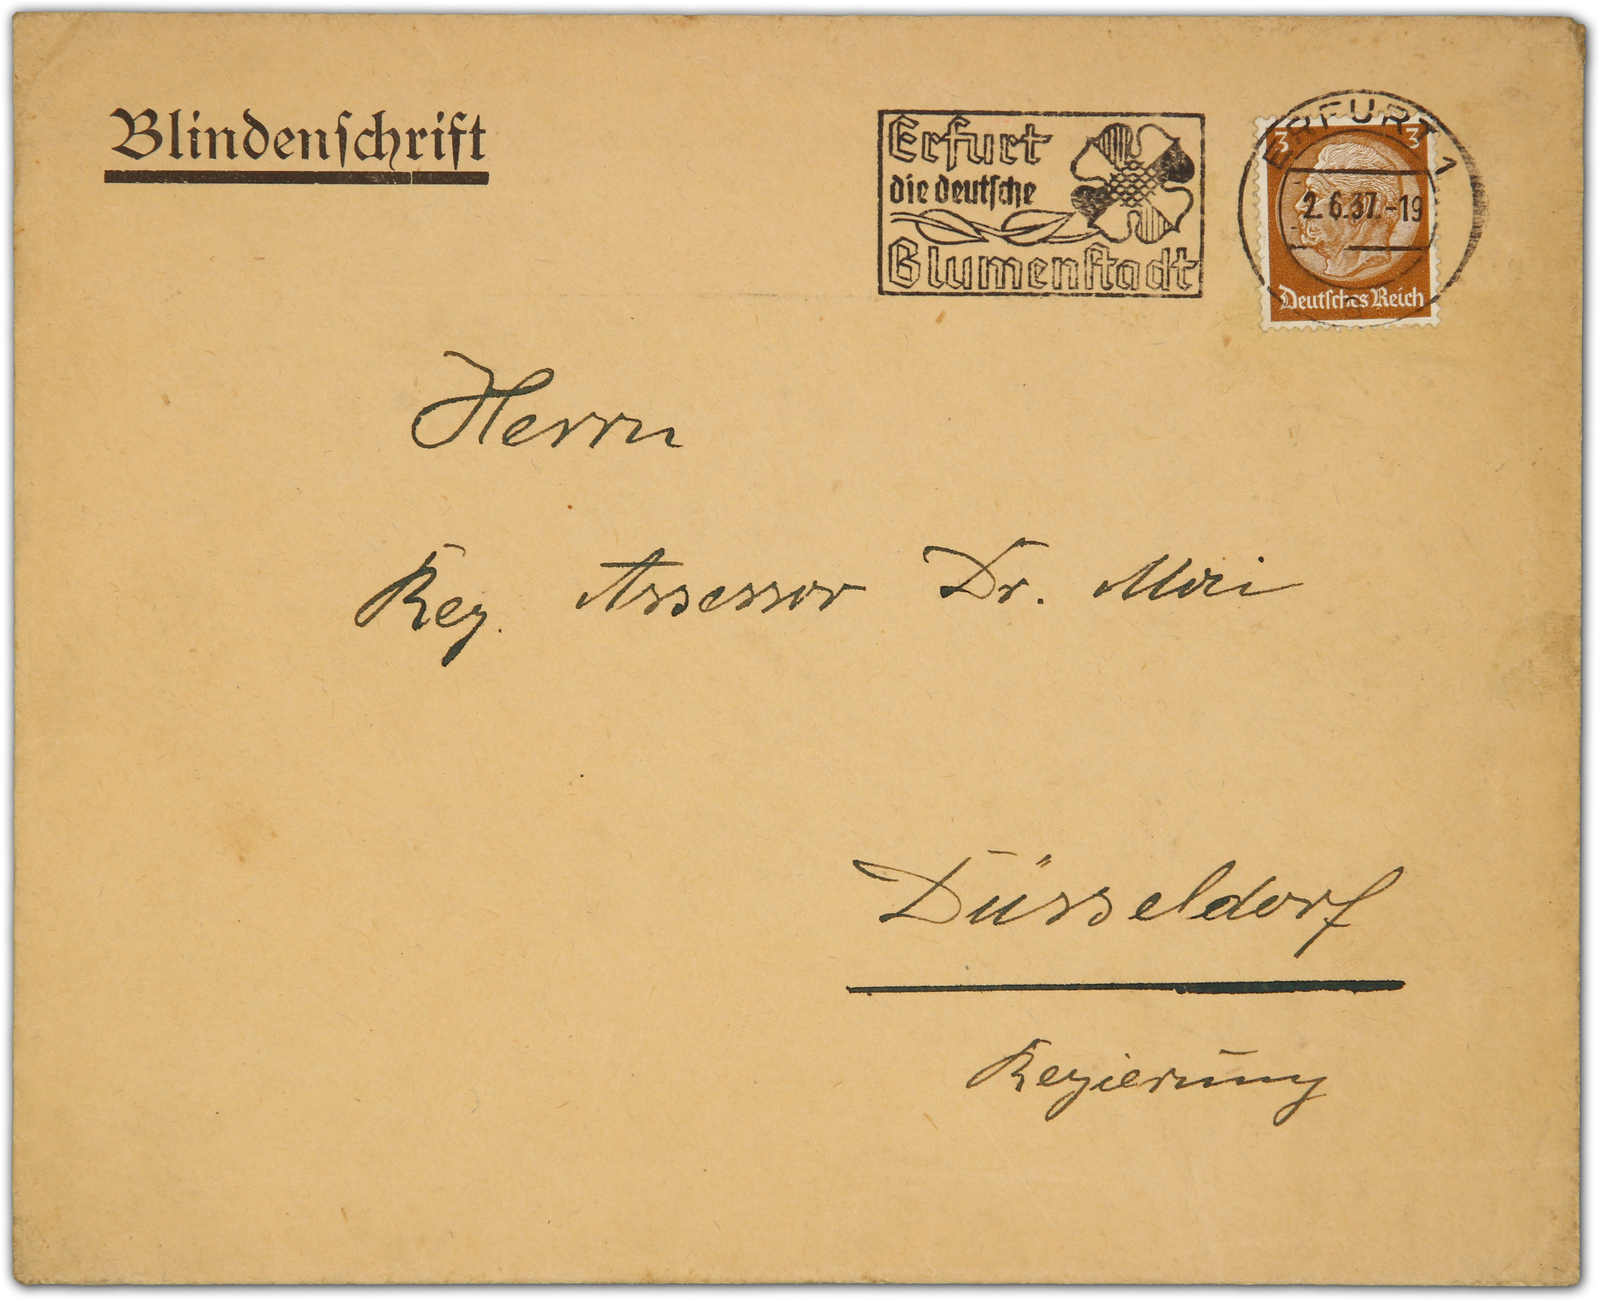 Blindenschrift
Erfurt
die deutsche
Blumenstadt
ERFURT 1
2.6.37.-19
3 3
Deutsches Reich
Herrn
Reg. Assessor Dr.
Düsseldorf
Regierung